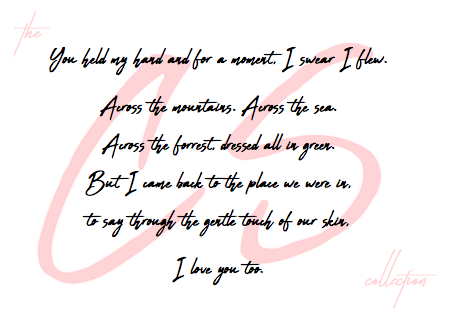 the
You held my hand and for a moment, I swear I flew.
Across the mountains. Across the sea.
Across the forrest, dressed all in green.
But I came back to the place we were in,
to say through the gentle touch of our skin,
I love you too.
CS
collection